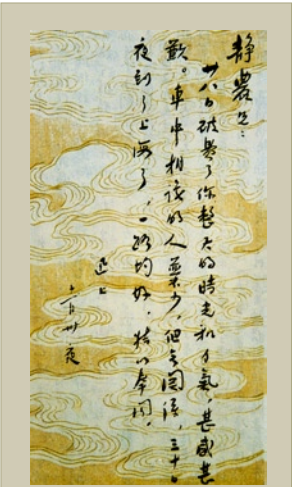 静農兄：
廿八日破費了你整天的時光和力氣，甚感甚
歉。車中相談的人並不少，但無關係，三十日
夜到了上海了，一路均好，特以奉聞。
迅上
六月卅夜